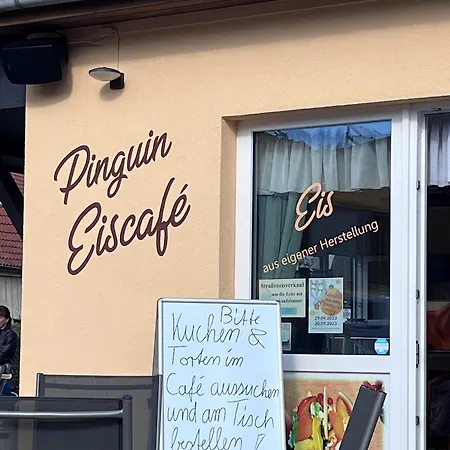 Pinguin
Eiscafé
Eis
aus eigener Herstellung
Straßeneisverkauf
um die Ecke am
29.09.2023
30.09.2023
Bitte
Kuchen &
Torten im
Café aussuchen
und am Tisch
bestellen!